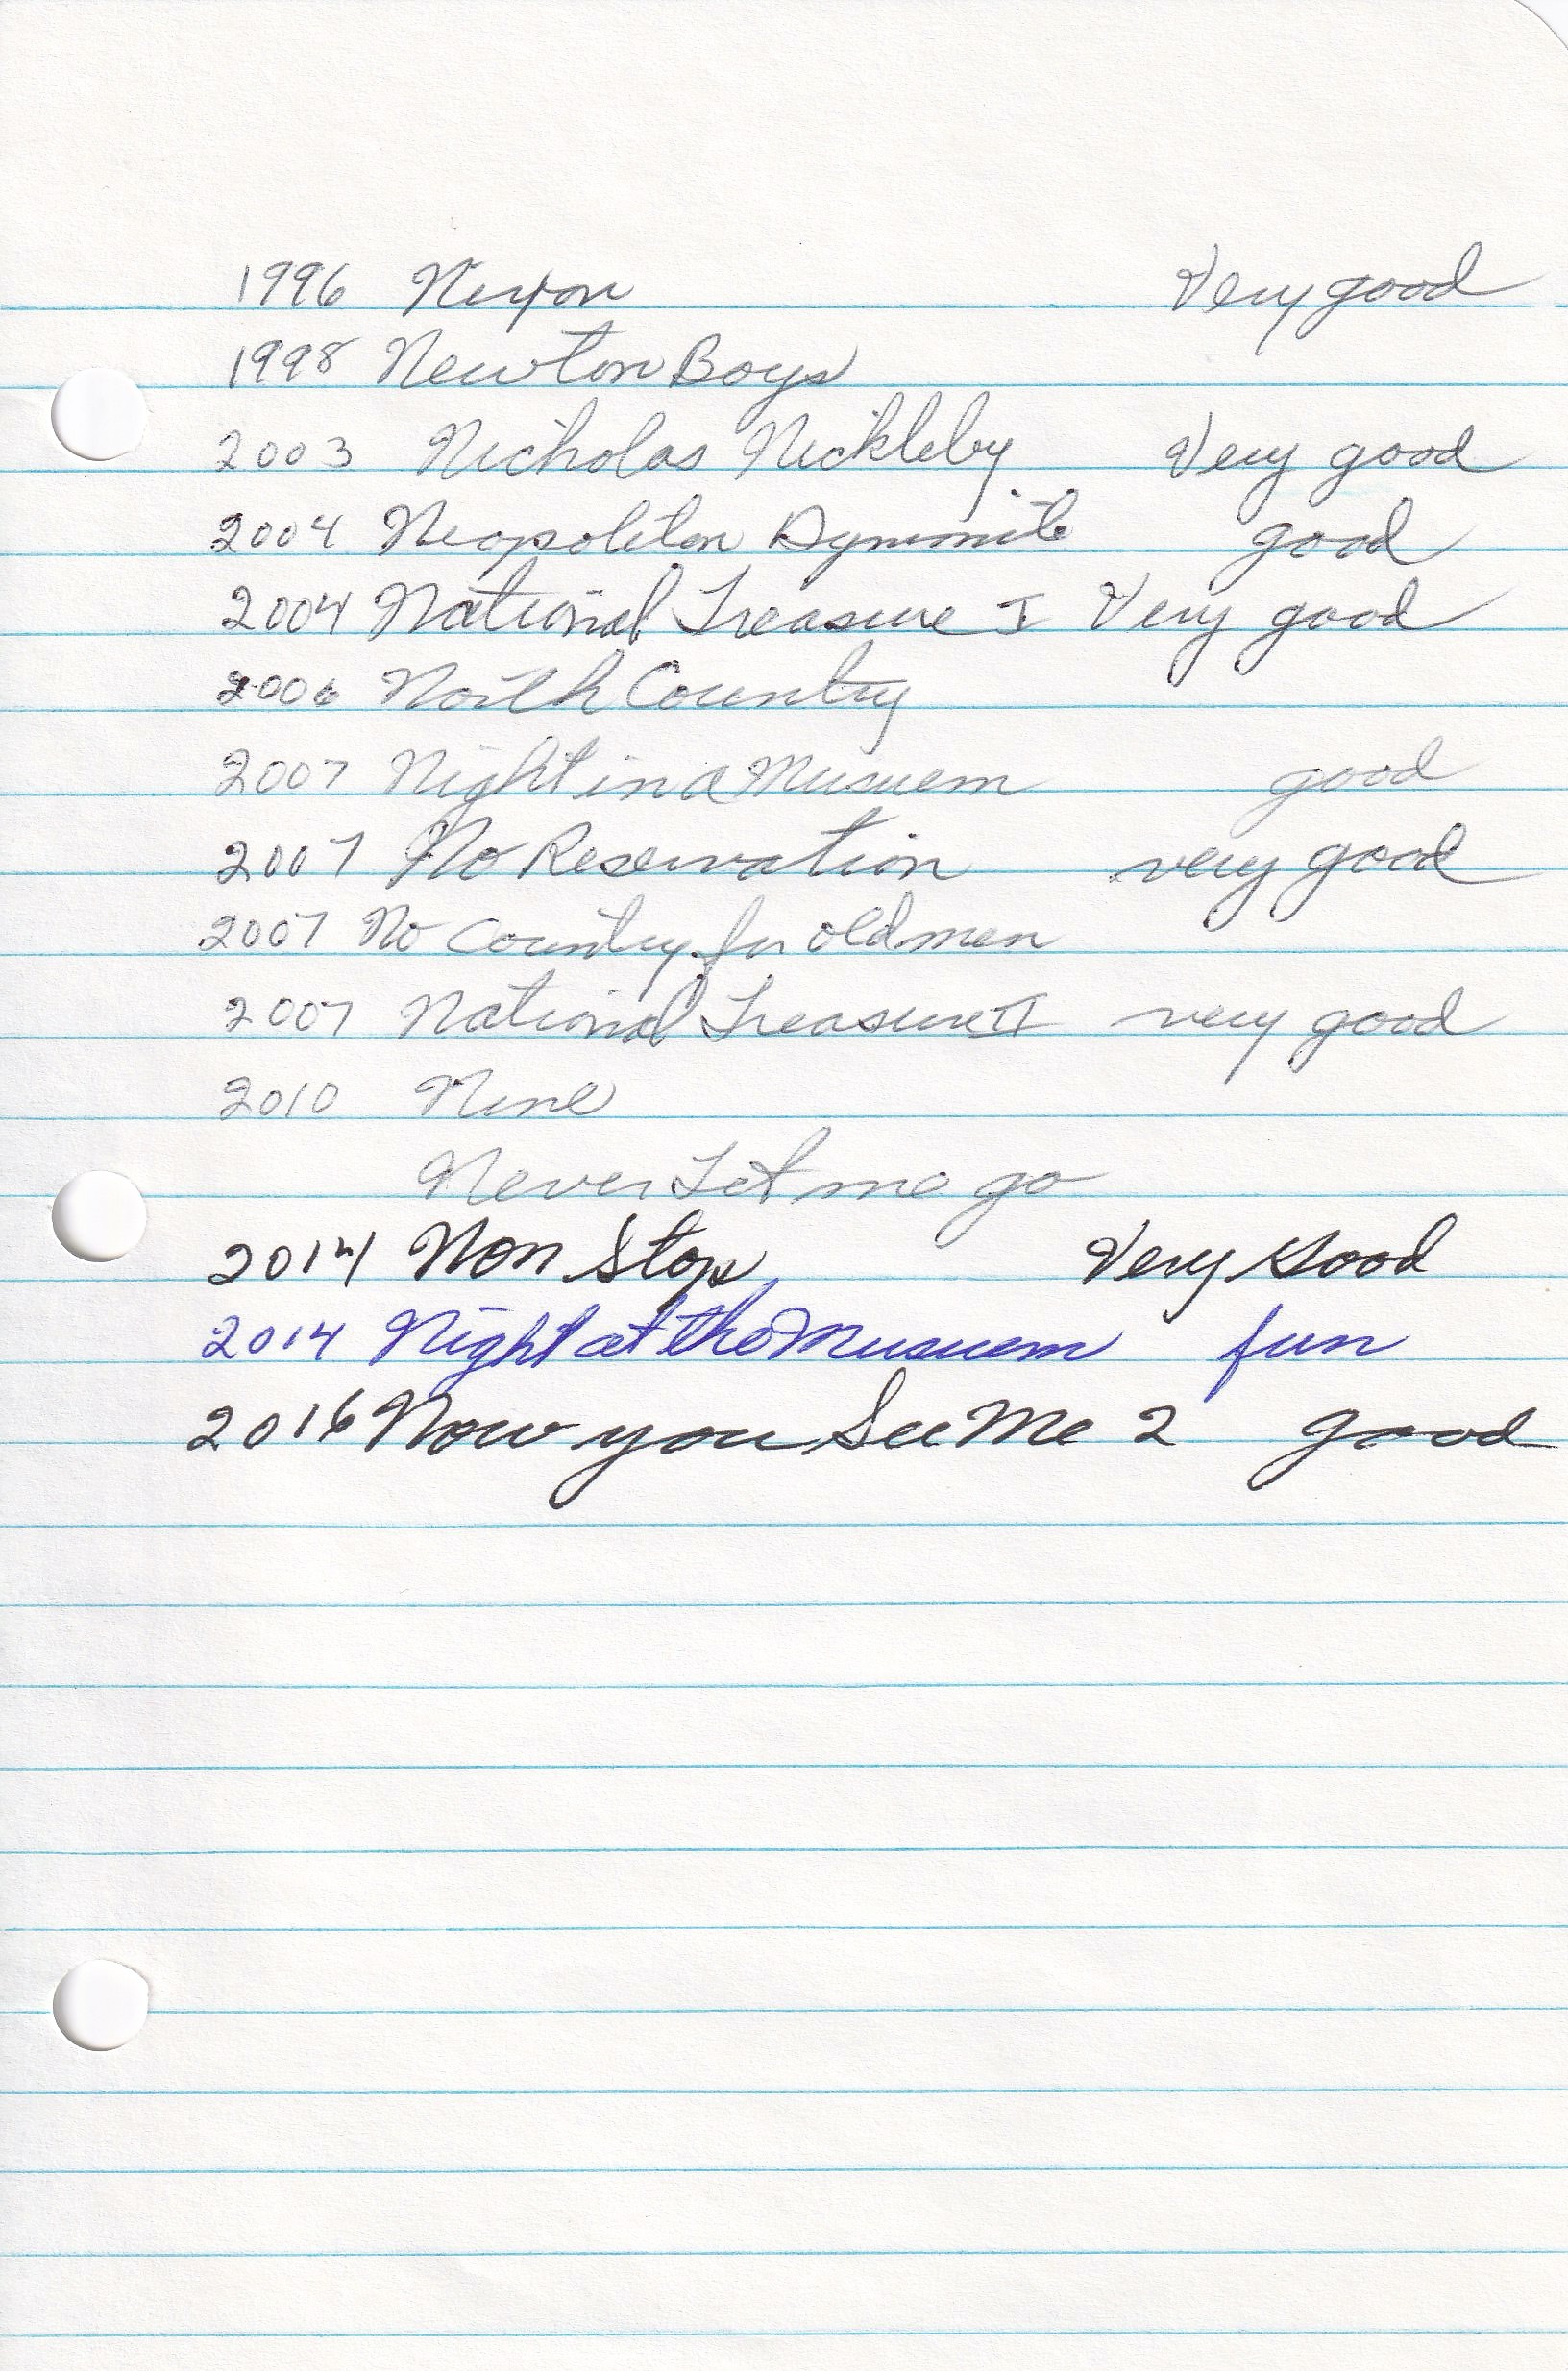 1996 Nixon Very good
1998 Newton Boys
2003 Nicholas Nickleby Very good
2004 Neopoliton Dynomite good
2004 National Treasure I Very good
2006 North Country
2007 Night in a Musuem good
2007 No Reservation very good
2007 No Country for old men
2007 National Treasure II very good
2010 Nine
Never Let me go
2014 Non Stop Very Good
2014 Night at the Musuem fun
2016 Now you See Me 2 good